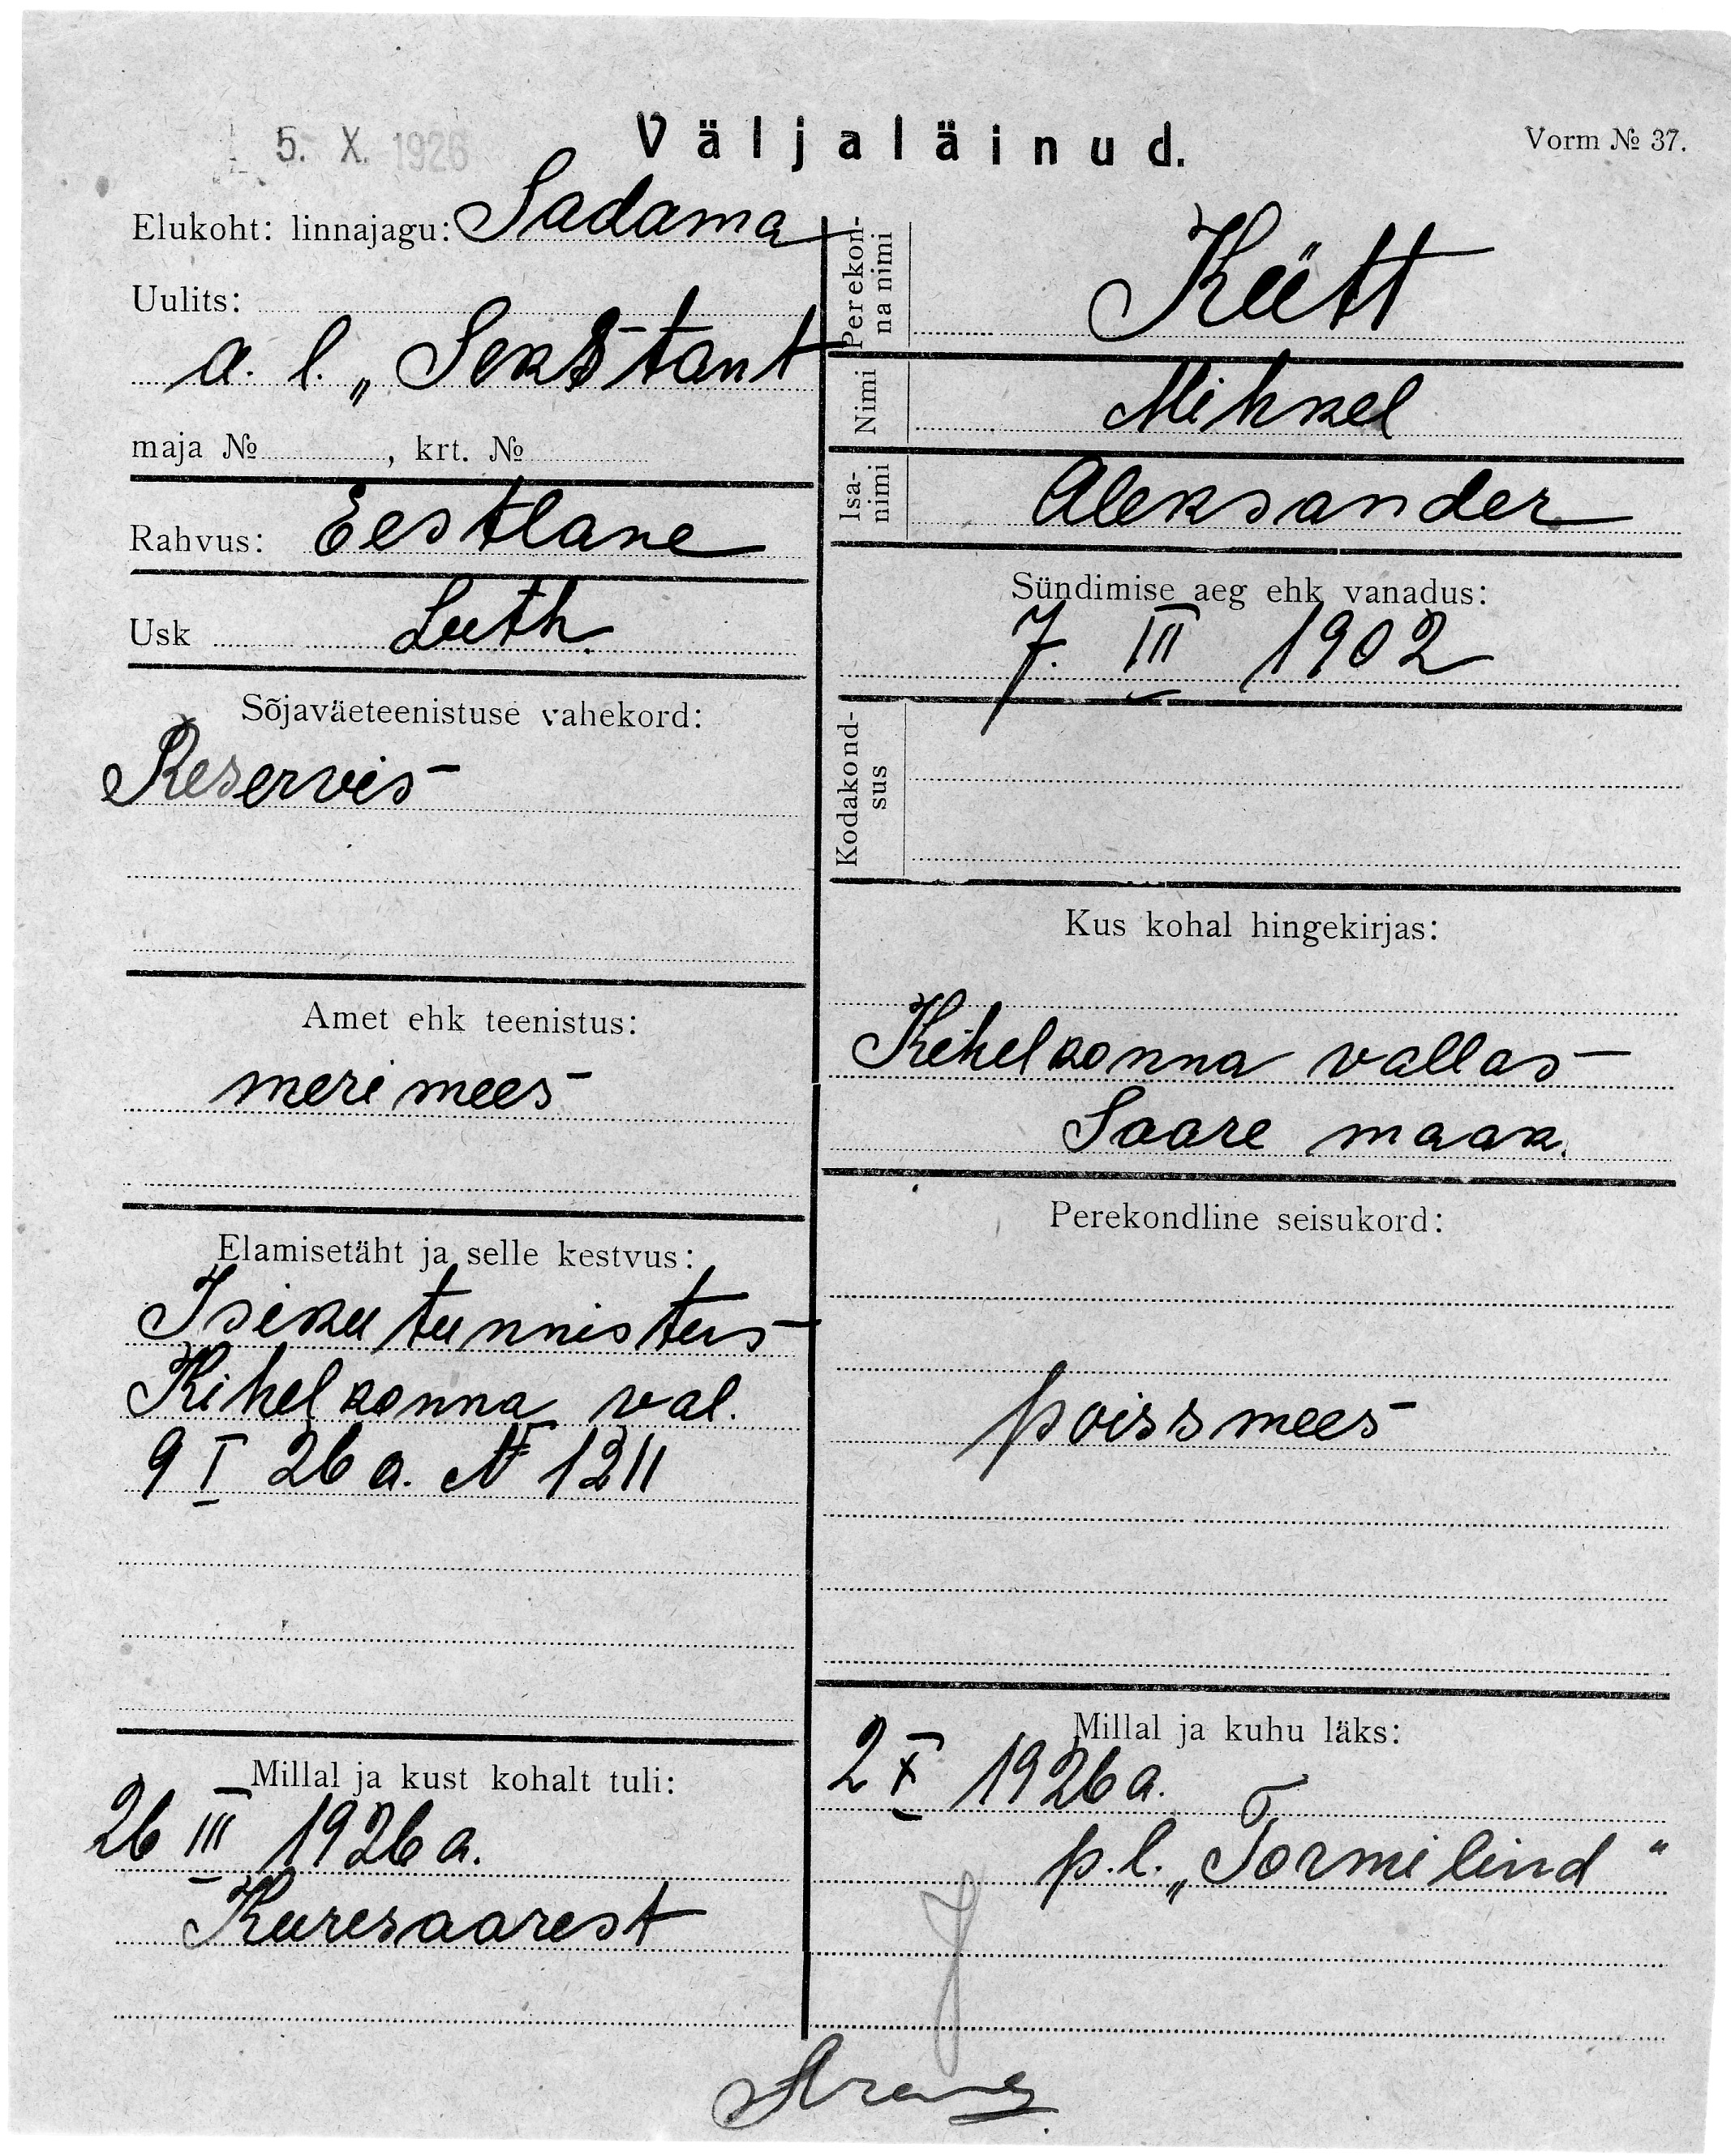 5. X. 1926
Väljaläinud.
Vorm № 37.
Elukoht: linnajagu: Sadama
Uulits:
a. l. „Sekstant
maja № , krt. №
Rahvus: Eestlane
Usk Luth.
Sõjaväeteenistuse vahekord:
Reservis
Amet ehk teenistus:
meri mees
Elamisetäht ja selle kestvus:
Isiku tunnistus
Kihelkonna val.
9 I 26 a. № 1211
Millal ja kust kohalt tuli:
26 III 1926 a.
Kuresaarest
Perekon-
na nimi
Kütt
Nimi Mihkel
Isa-
nimi
Aleksander
Sündimise aeg ehk vanadus:
7. III 1902
Kodakond-
sus
Kus kohal hingekirjas:
Kihelkonna vallas
Saare maak.
Perekondline seisukord:
poissmees
Millal ja kuhu läks:
2 X 1926 a.
p. l. „Tormilind"